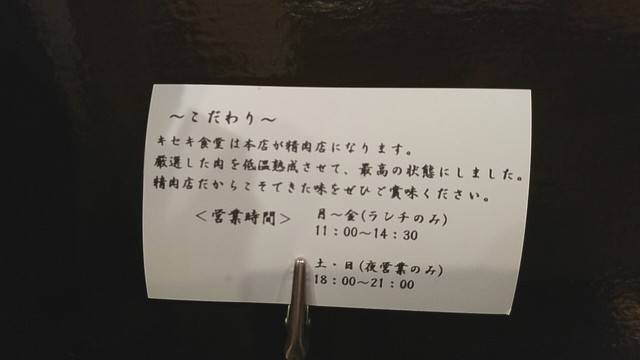 ～こだわり～
キセキ食堂は本店が精肉店になります。
厳選した肉を低温熟成させて、最高の状態にしました。
精肉店だからこそできた味をぜひご賞味ください。
＜営業時間＞ 月～金(ランチのみ)
11：00～14：30
土・日(夜営業のみ)
18：00～21：00